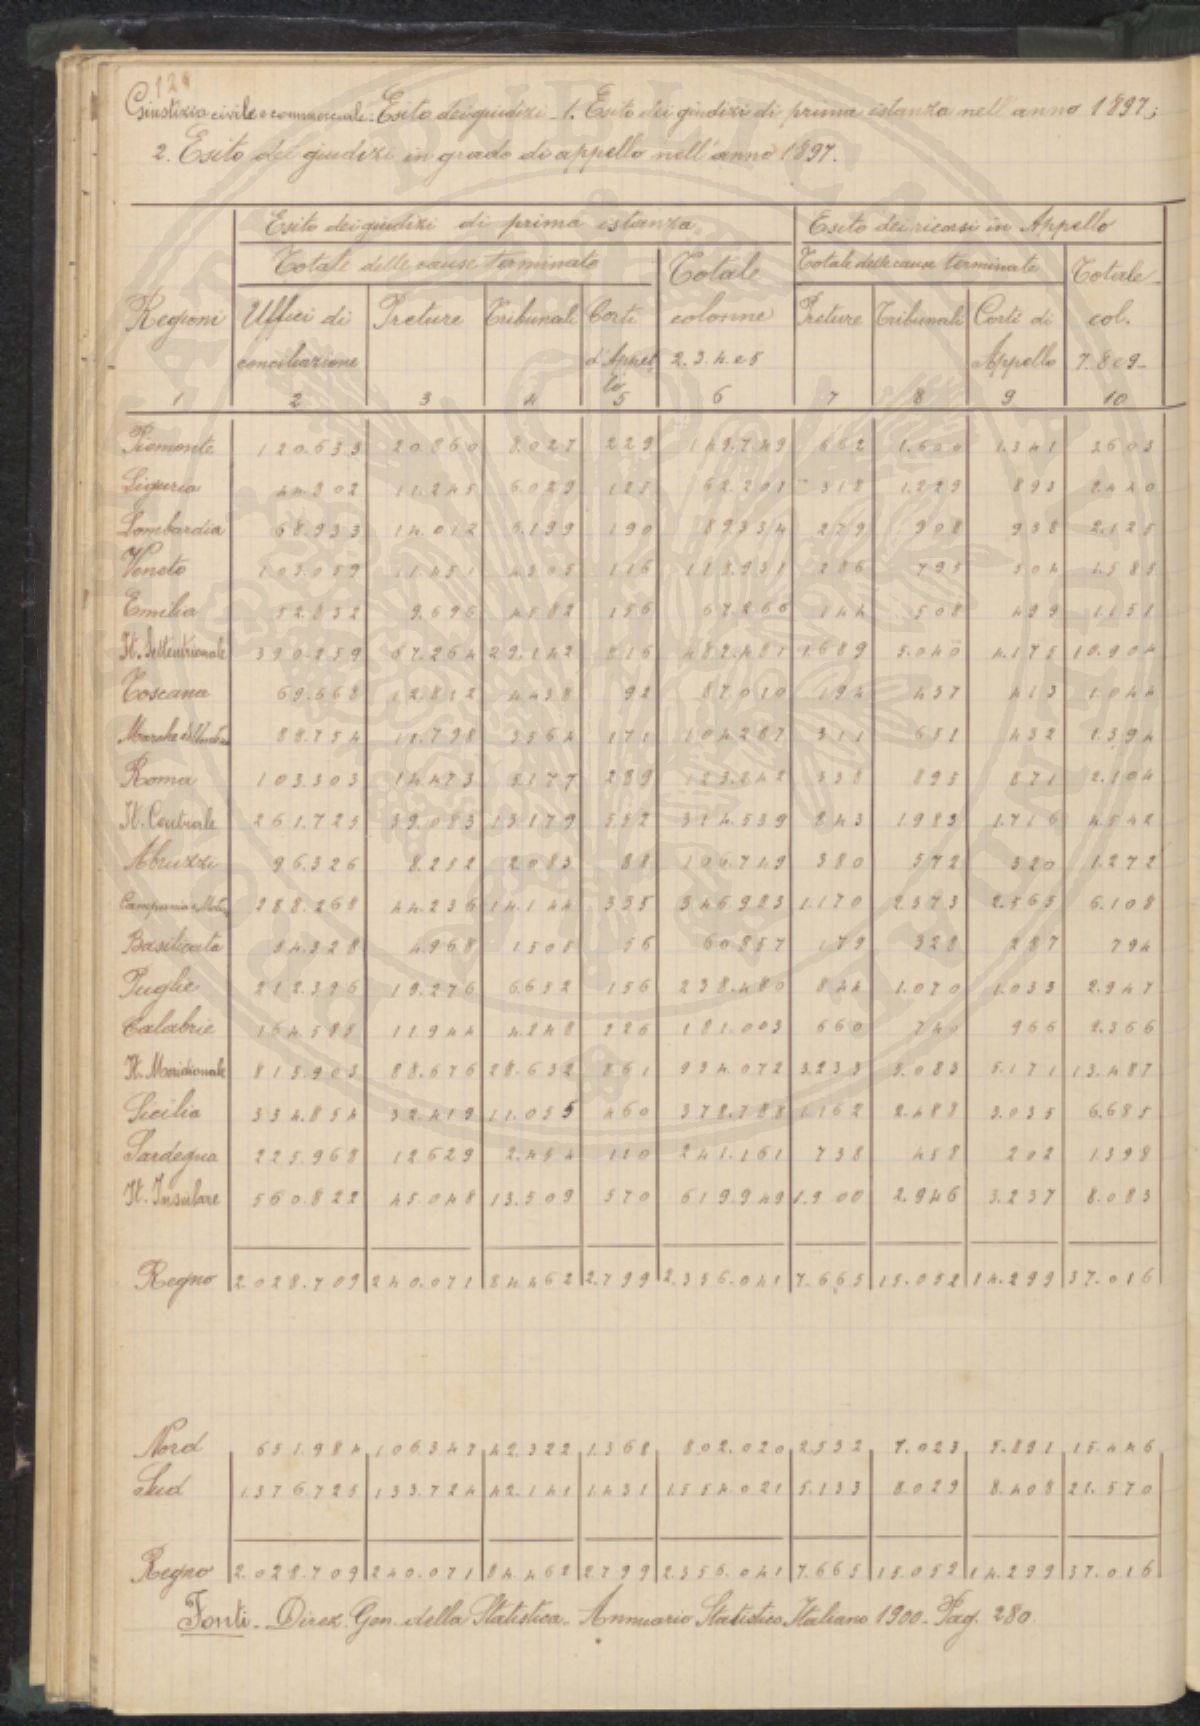 124
Giustizia civile e commerciale. Esito dei giudizi. 1. Esito dei giudizi di prima istanza nell'anno 1897;
2. Esito dei giudizi in grado di appello nell'anno 1897.
Esito dei giudizi di prima istanza Esito dei ricorsi in Appello
Totale delle cause terminate Totale Totale delle cause terminate Totale
Regioni Uffici di Preture Tribunali Corti colonne Preture Tribunali Corti di col.
conciliazione d'Appel 2.3.4 e 5 Appello 7.8 e 9
lo
1 2 3 4 5 6 7 8 9 10
Piemonte 120.633 20.860 8.027 229 149.749 662 1.600 1.341 3603
Liguria 44.302 11.245 6.029 125 62.203 318 1.229 893 2.440
Lombardia 68.933 14.012 6.199 190 89334 279 908 938 2.125
Veneto 103.059 11.451 4305 116 118.931 286 795 504 1.585
Emilia 52.832 9.696 4582 156 67266 144 508 499 1.151
It. Settentrionale 390.259 67.264 29.142 816 482.481 1.689 5.040 4.175 10.904
Toscana 69.668 12.812 4438 92 87.010 194 437 413 1.044
Marche ed Umbria 88.754 11.798 3564 171 104287 311 651 432 1.394
Roma 103.303 14473 5177 289 123.242 338 895 871 2.104
It. Centrale 261.725 39.083 13179 552 314.539 843 1983 1.716 4542
Abruzzi 96.326 8.252 2083 88 106.749 380 572 320 1.272
Campania e Molise 288.268 44.236 14.144 335 346983 1.170 2.373 2.565 6.108
Basilicata 54.328 4.968 1508 56 60857 179 328 287 794
Puglie 212.396 19.276 6652 156 238.480 844 1.070 1.033 2.947
Calabrie 164.585 11944 4248 226 181.003 660 740 966 2.366
It. Meridionale 815.903 88.676 28.632 861 934.072 3.233 5.083 5.171 13.487
Sicilia 334.854 32.419 11.055 460 378.788 1.162 2.488 3.035 6.685
Sardegna 225.968 12629 2.454 110 241.161 738 458 202 1398
It. Insulare 560.822 45.048 13.509 570 619949 1.900 2.946 3.237 8.083
Regno 2.028.709 240.071 84462 2.799 2.356.041 7.665 15.052 14.299 37.016
Nord 651.984 106347 42.322 1368 802.020 2532 7.023 5.891 15.446
Sud 1376.725 133.724 42.141 1431 1.554.021 5.133 8.029 8.408 21.570
Regno 2.028.709 240.071 84.462 2799 2.356.041 7.665 15.052 14.299 37.016
Fonti - Direz. Gen. della Statistica. Annuario Statistico Italiano 1900 - Pag. 280.